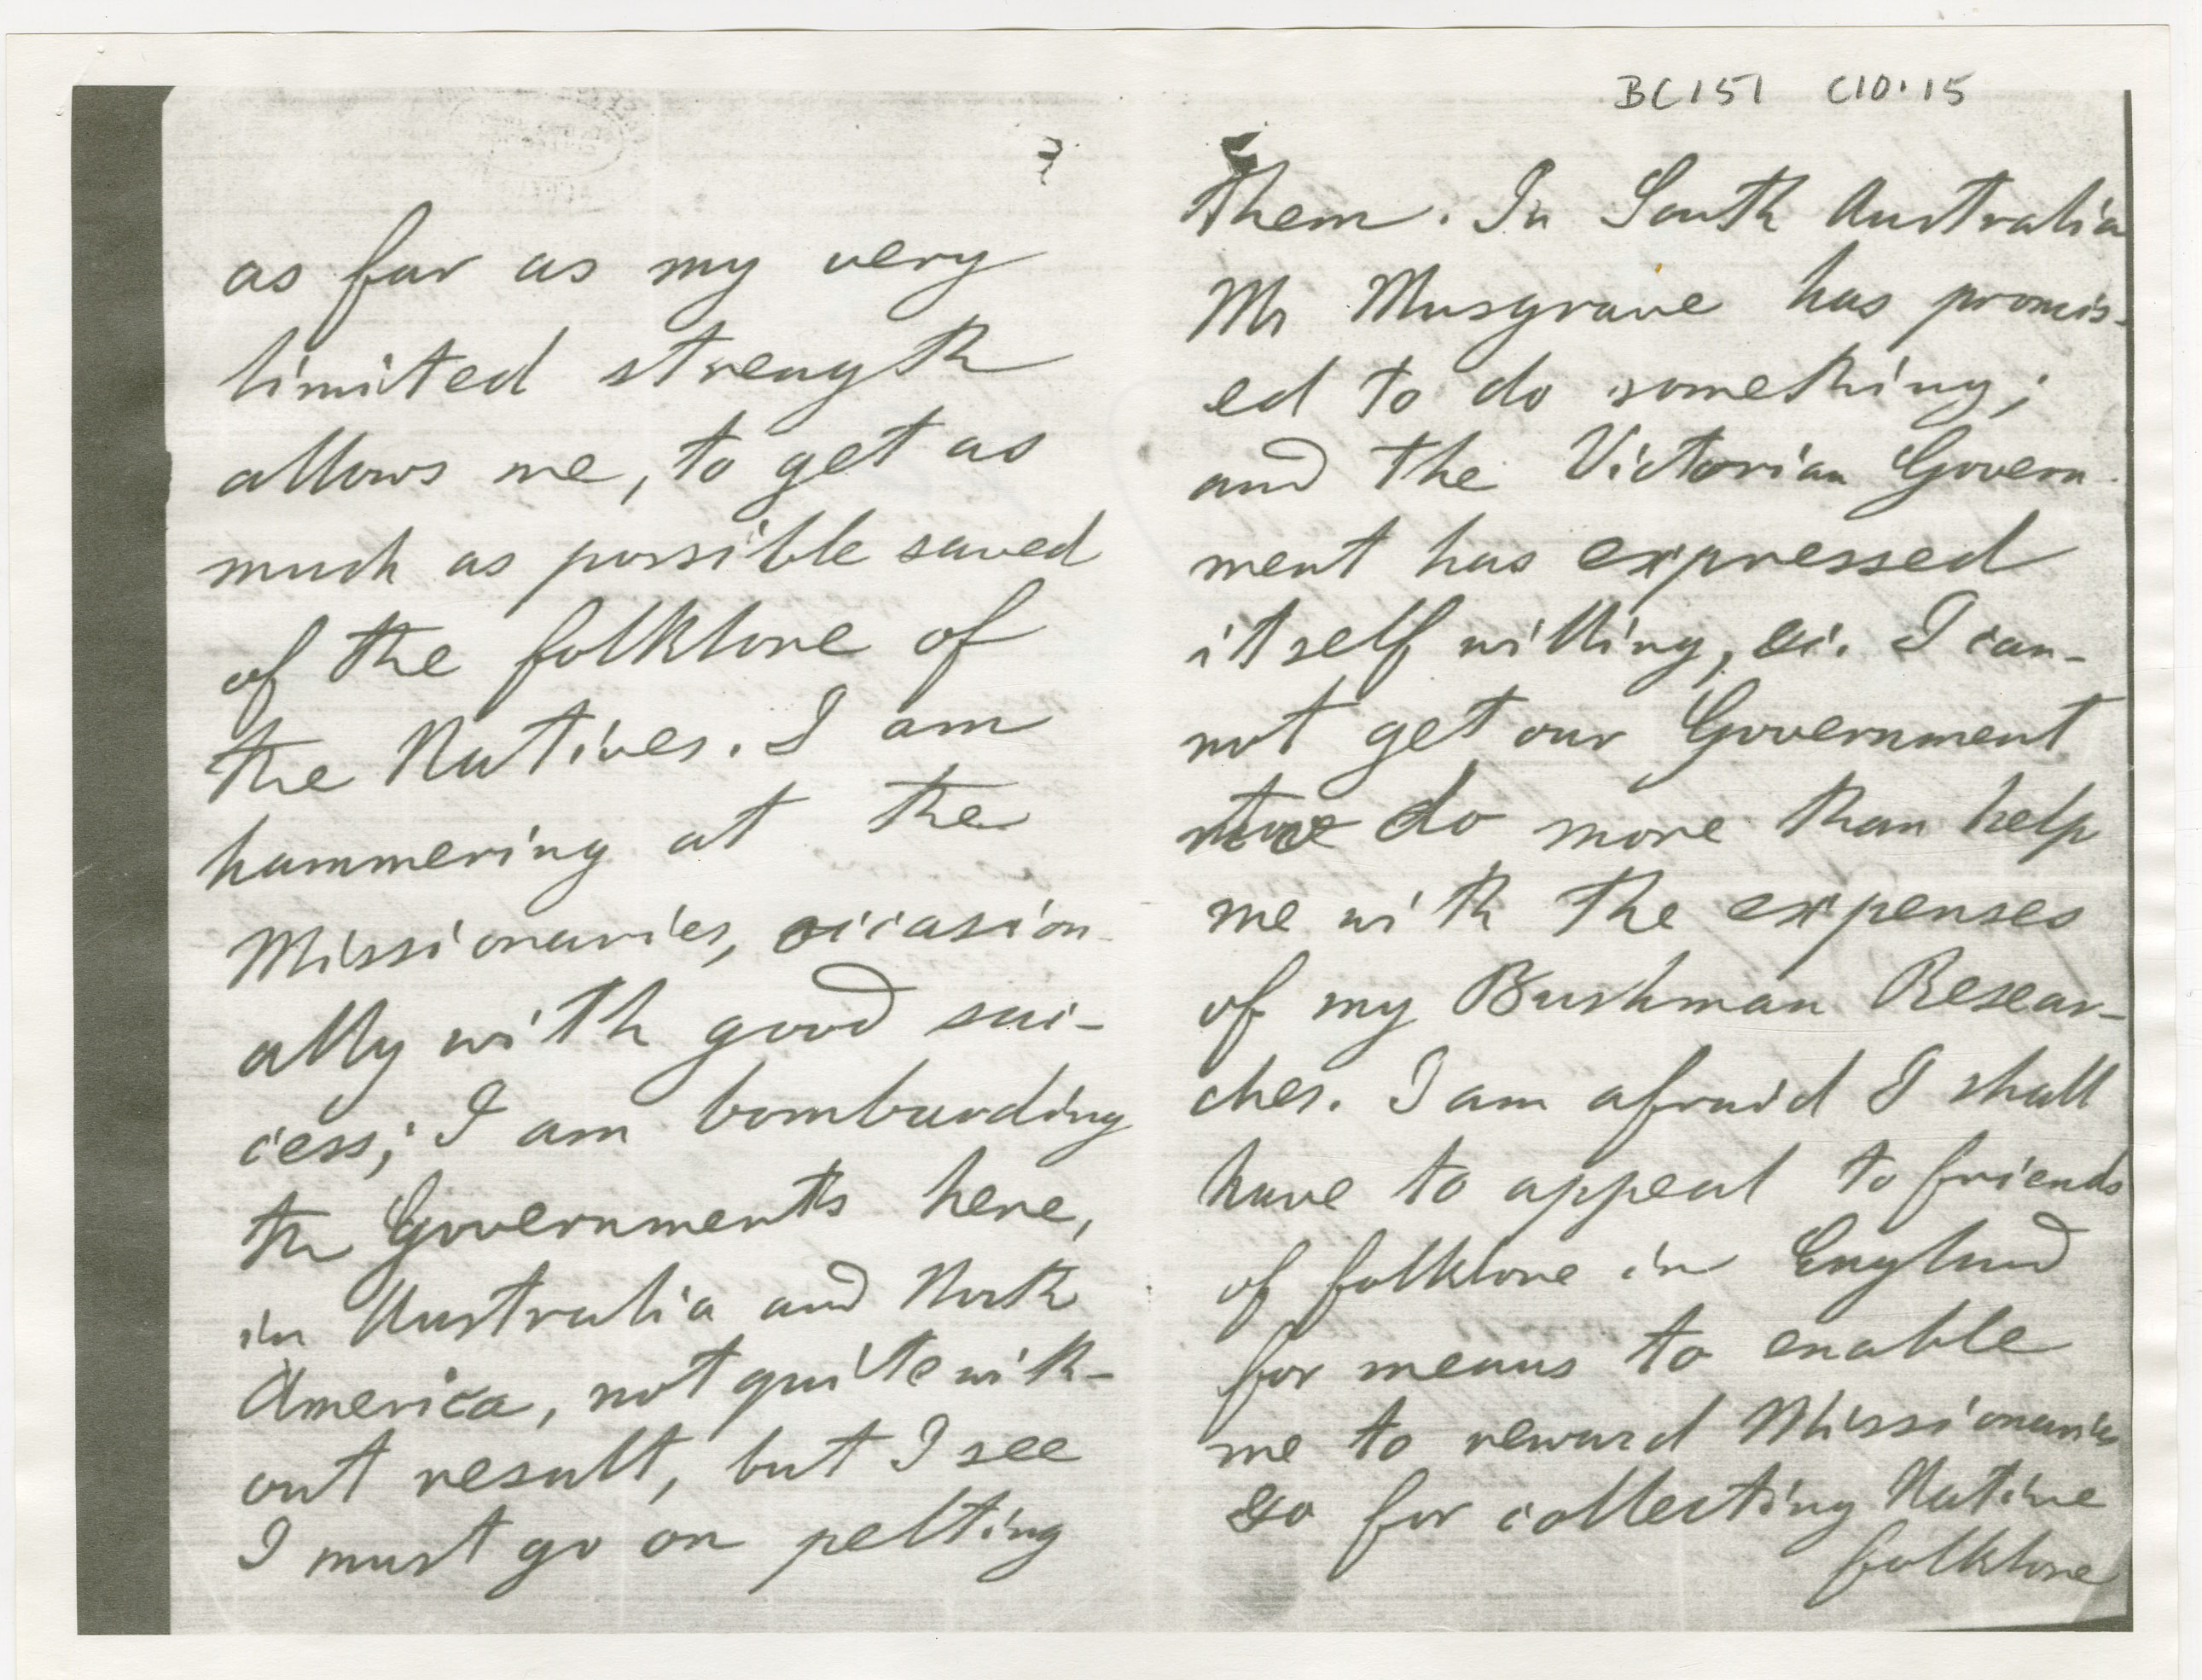 BC151 C10.15
7
as far as my very
limited strength
allows me, to get as
much as possible saved
of the folklore of
the Natives. I am
hammering at the
Missionaries, occasion-
ally with good suc-
cess; I am bombarding
the Governments here,
in Australia and North
America, not quite with-
out result, but I see
I must go on pelting
them. In South Australia
Mr Musgrave has promis-
ed to do something;
and the Victorian Govern-
ment has expressed
itself willing, &c. I can-
not get our Government
do more than help
me with the expenses
of my Bushman Resear-
ches. I am afraid I shall
have to appeal to friends
of folklore in England
for means to enable
me to reward Missionaries
&c for collecting Native
folklore